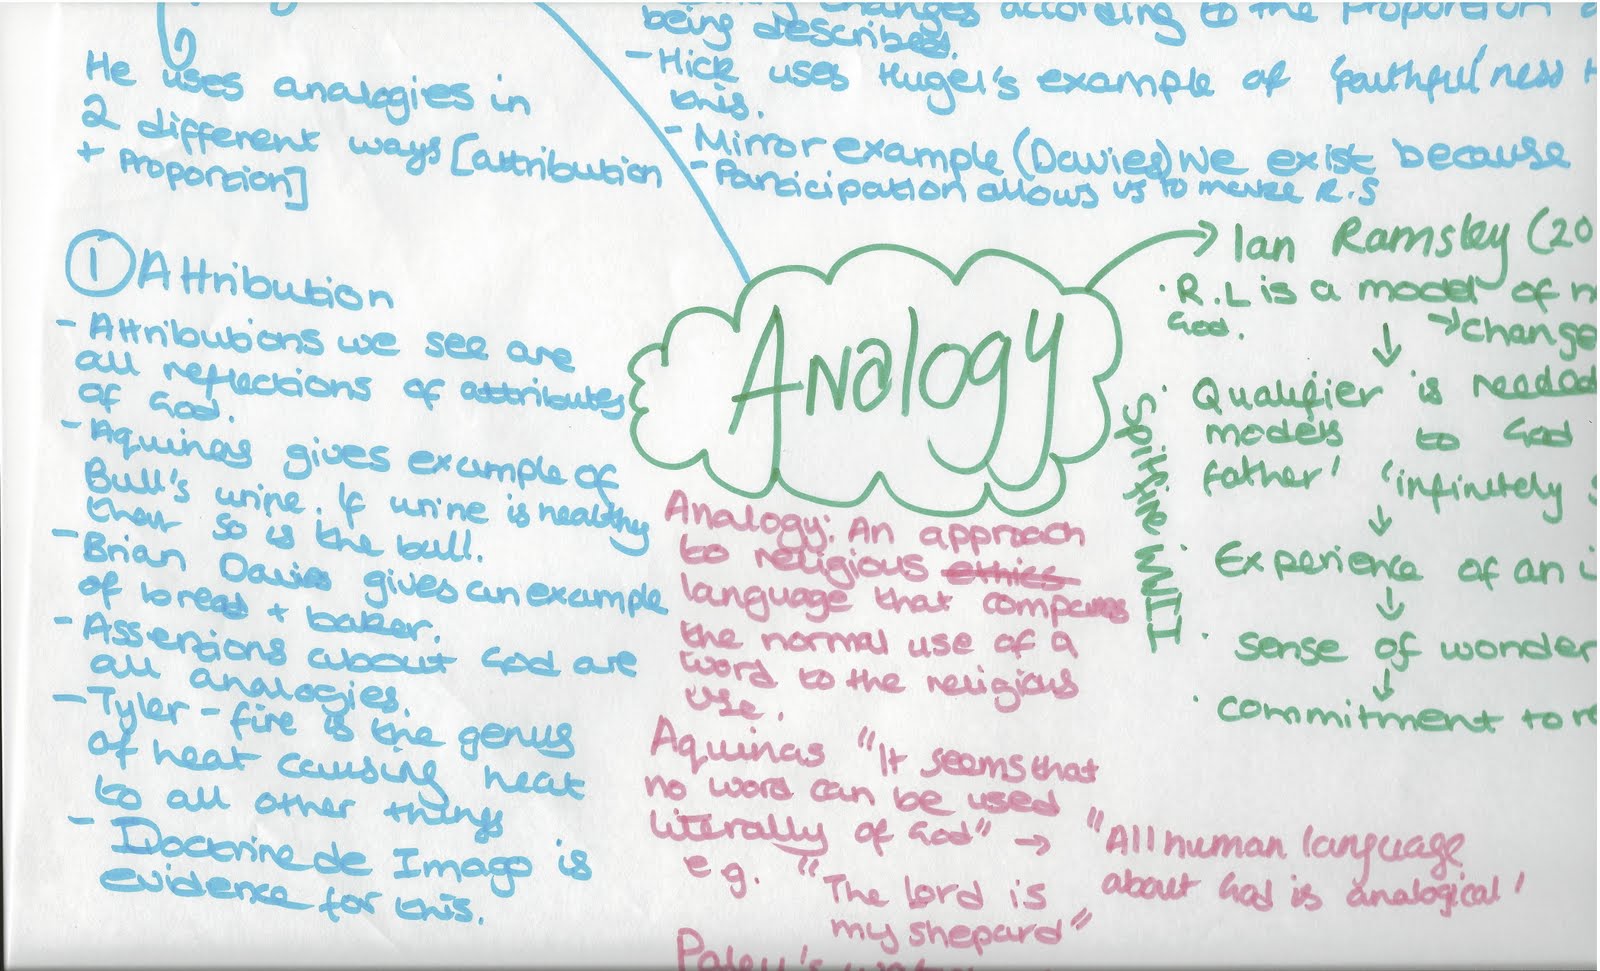 He uses analogies in
2 different ways [attribution
+ Proportion]
① Attribution
- Attributions we see are
all reflections of attributes
of God.
- Aquinas gives example of
Bull's urine. If urine is healthy
then so is the bull.
- Brian Davies gives an example
of bread + baker.
- Assertions about God are
all analogies.
- Tyler - fire is the genus
of heat causing heat
to all other things
- Doctrine de Imago is
evidence for this.
changes according to the proportion
being described.
- Hick uses Hugel's example of 'faithful'ness
this.
- Mirror example (Davies) We exist because
- Participation allows us to make R.S
Analogy
Analogy: An approach
to religious ethics
language that compares
the normal use of a
word to the religious
use.
Aquinas "It seems that
no word can be used
literally of God" → "All human language
about God is analogical'
e.g. "The lord is
my shepard"
Paley's
→ Ian Ramsley (20
· R.L is a model of
God. → change
↓
· Qualifier is needed
models to God
father' 'infinitely
↓
· Experience of an
↓
· sense of wonder
↓
· commitment to
Spitfire WWII